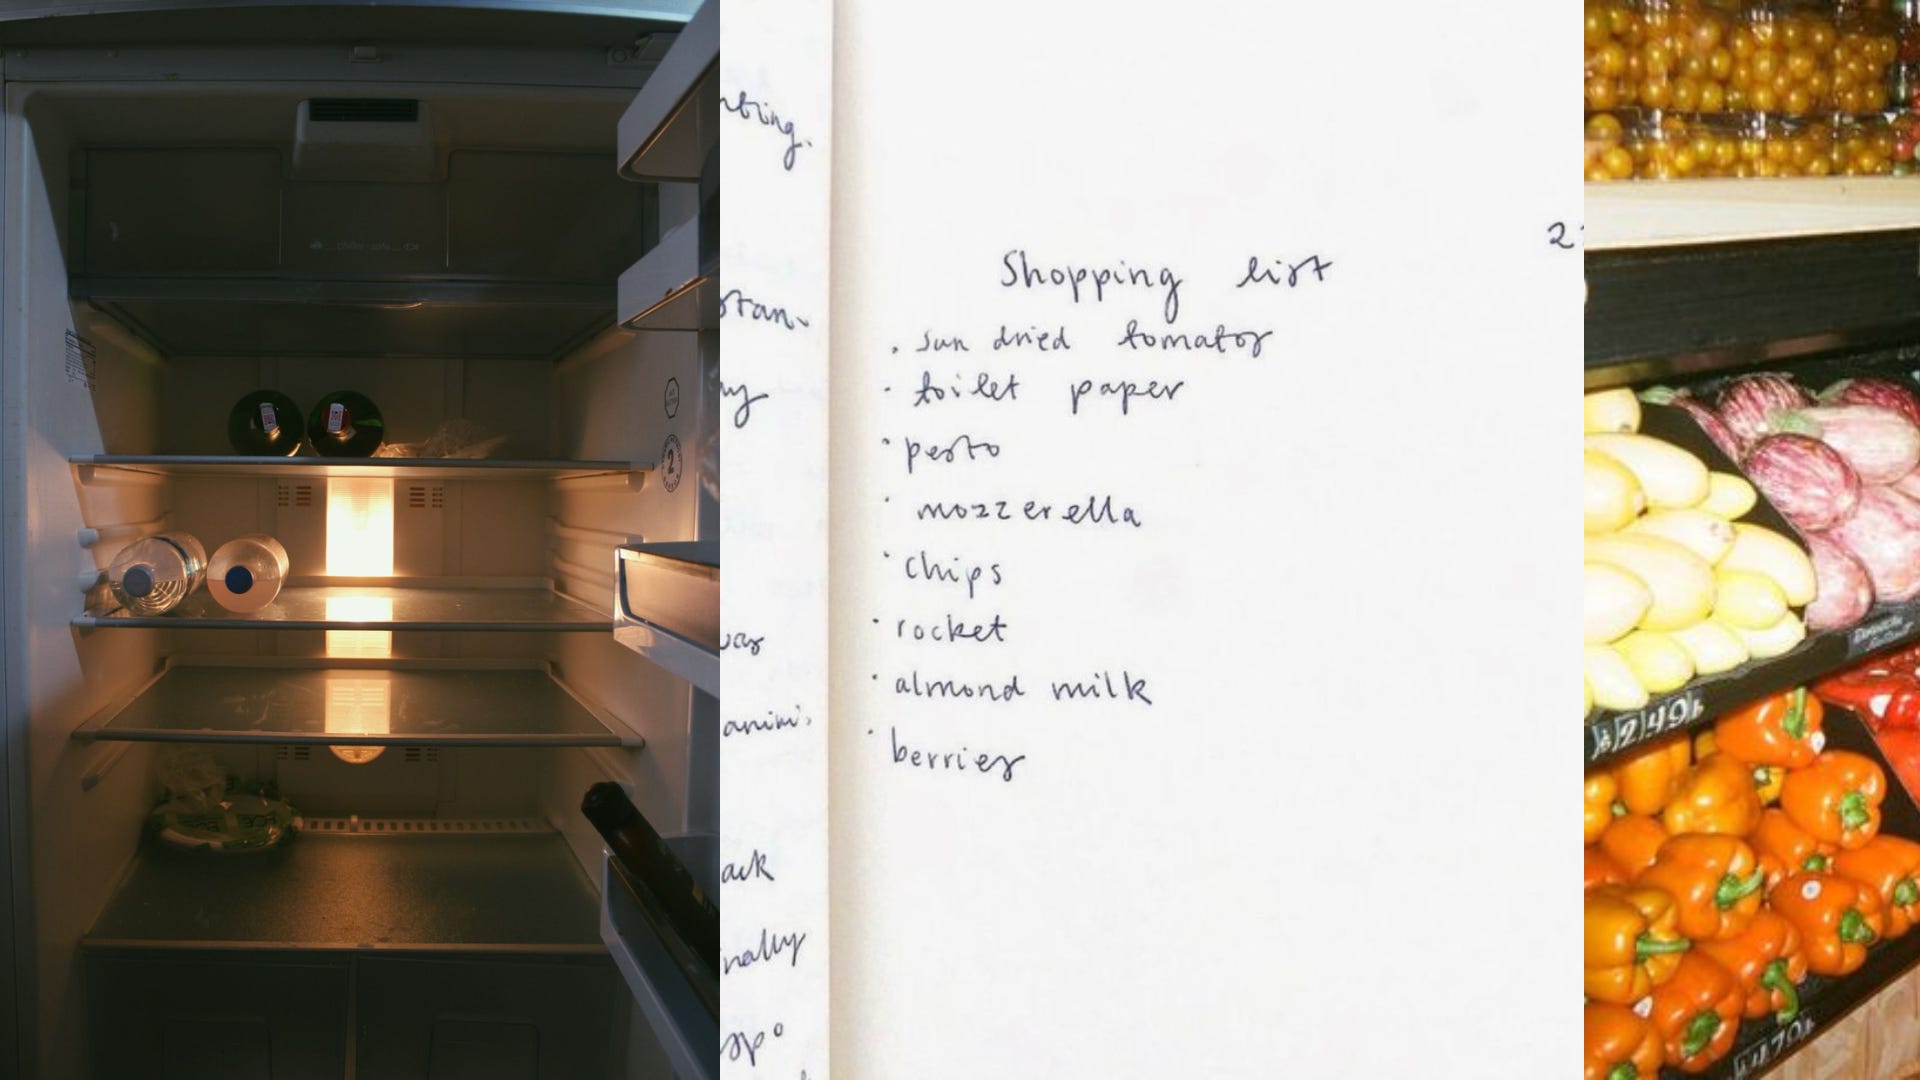 nting.
stan-
ny
was
anini.
ack
nally
spo
2
Shopping list
. sun dried tomatos
· toilet paper
· pesto
· mozzerella
· chips
· rocket
· almond milk
· berries
2
2|49